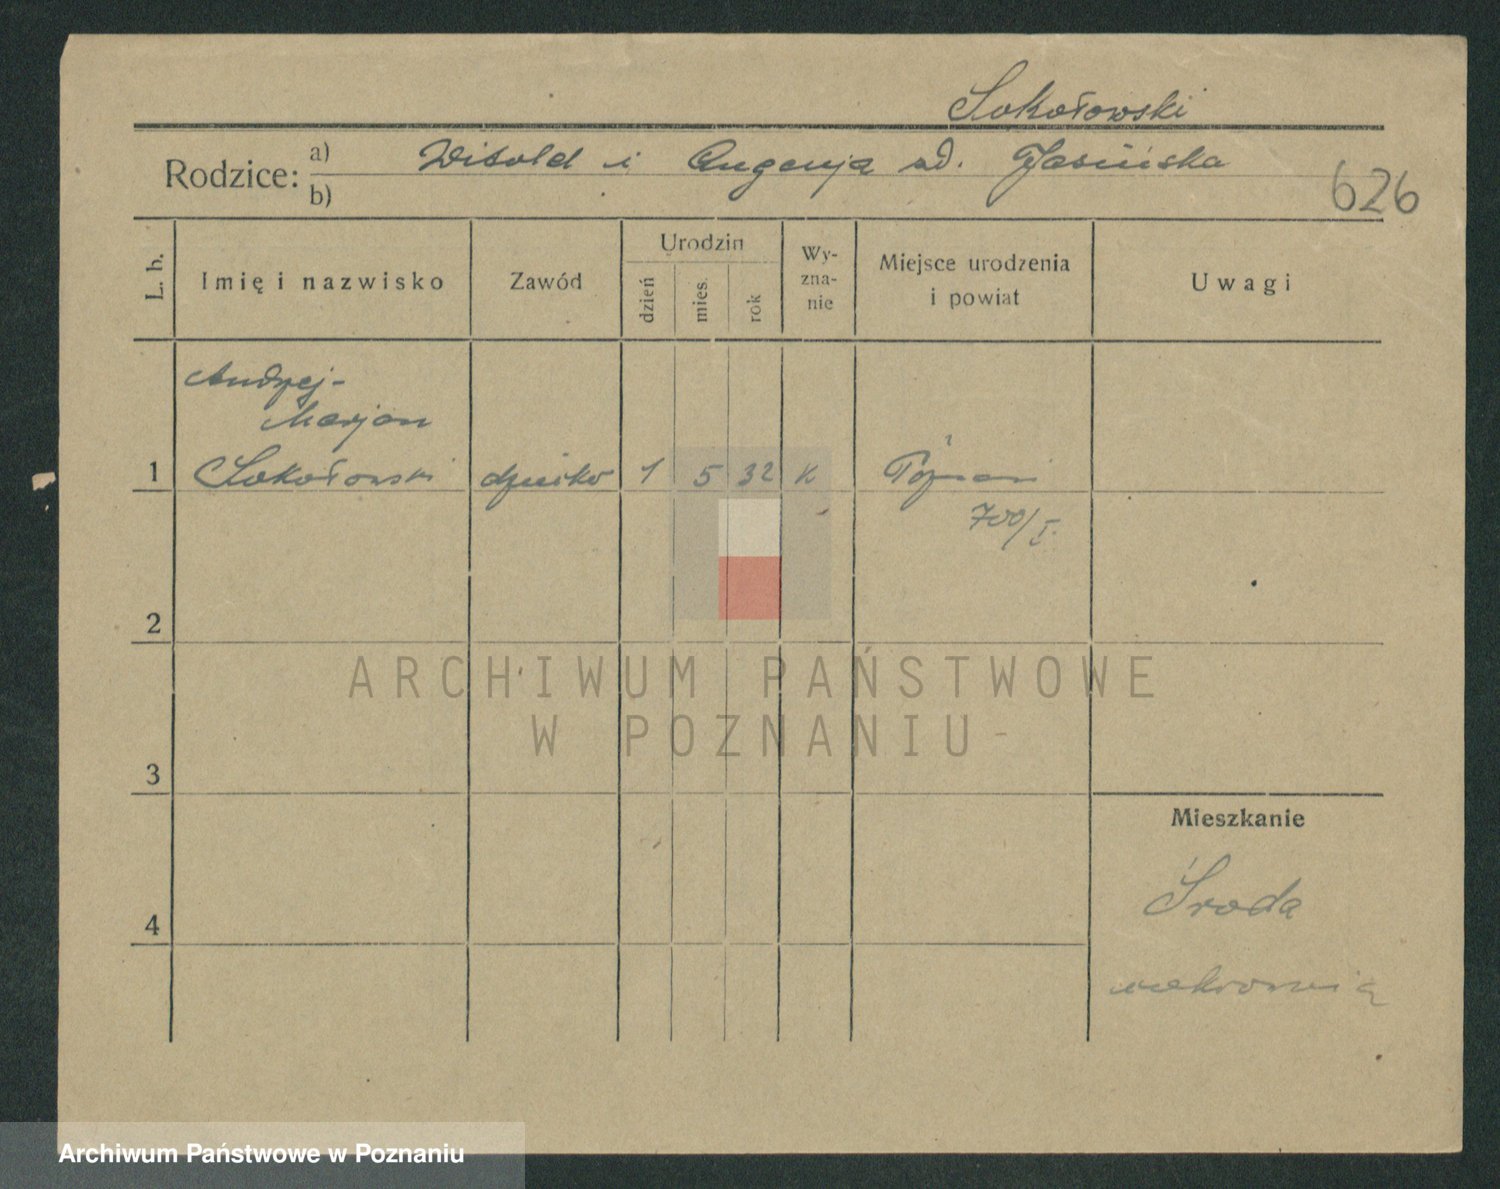 Sokołowski
Rodzice: a) Witold i Eugenja zd. Jasińska
b)
626
L. b.
Imię i nazwisko
Zawód
Urodzin
dzień
mies.
rok
Wy-
zna-
nie
Miejsce urodzenia
i powiat
Uwagi
Andrzej-
Marjan
1 Sokołowski dziecko 1 5 32 k Poznań
700/I.
2
ARCHIWUM PAŃSTWOWE
W POZNANIU
3
Mieszkanie
Środa
4
Archiwum Państwowe w Poznaniu